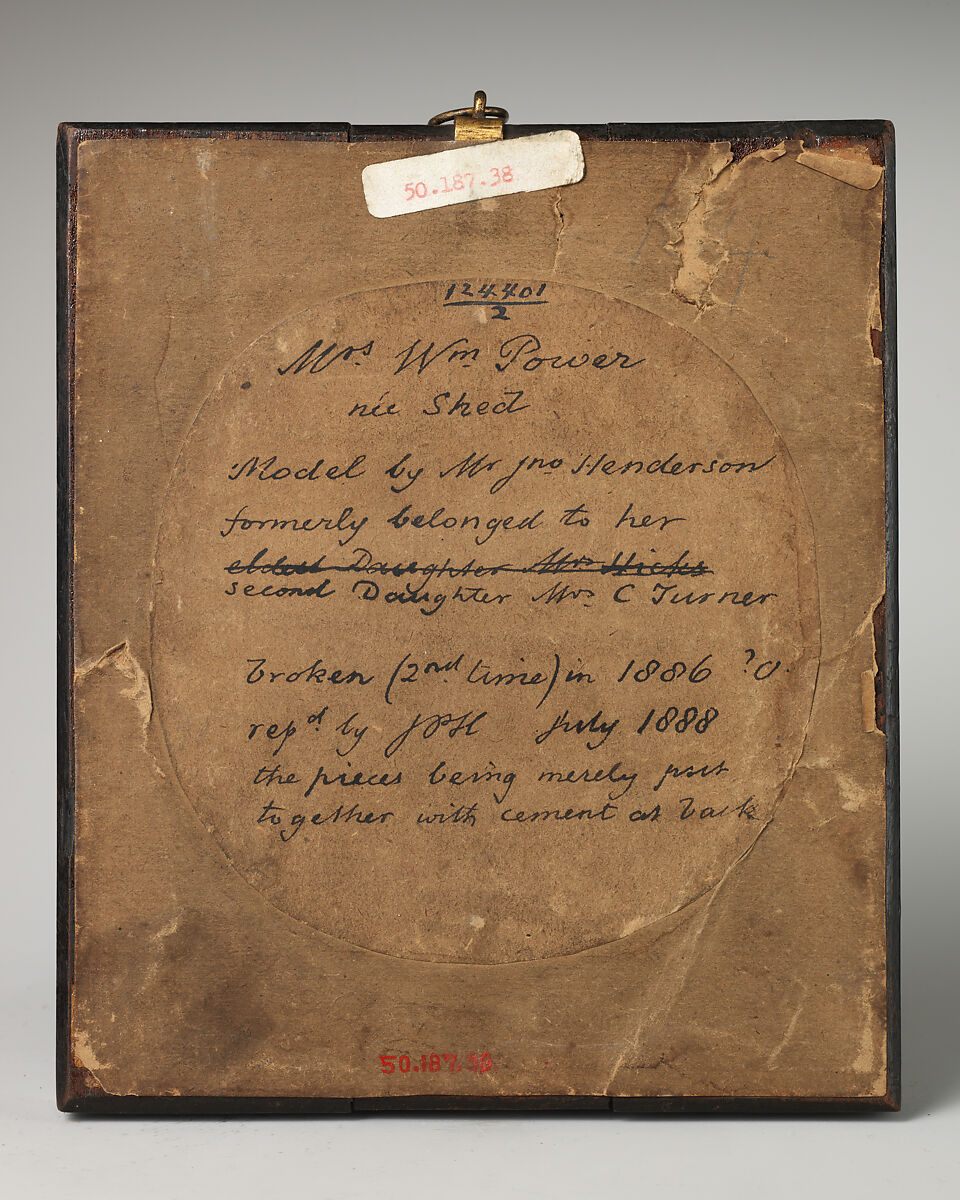 50.187.38
124401
2
Mrs Wm Power
née Shed
Model by Mr Jno Henderson
formerly belonged to her
eldest Daughter Mrs Hicks
second Daughter Mrs C Turner
broken (2nd time) in 1886 ?
repd by JPH July 1888
the pieces being merely put
together with cement at back
50.187.38